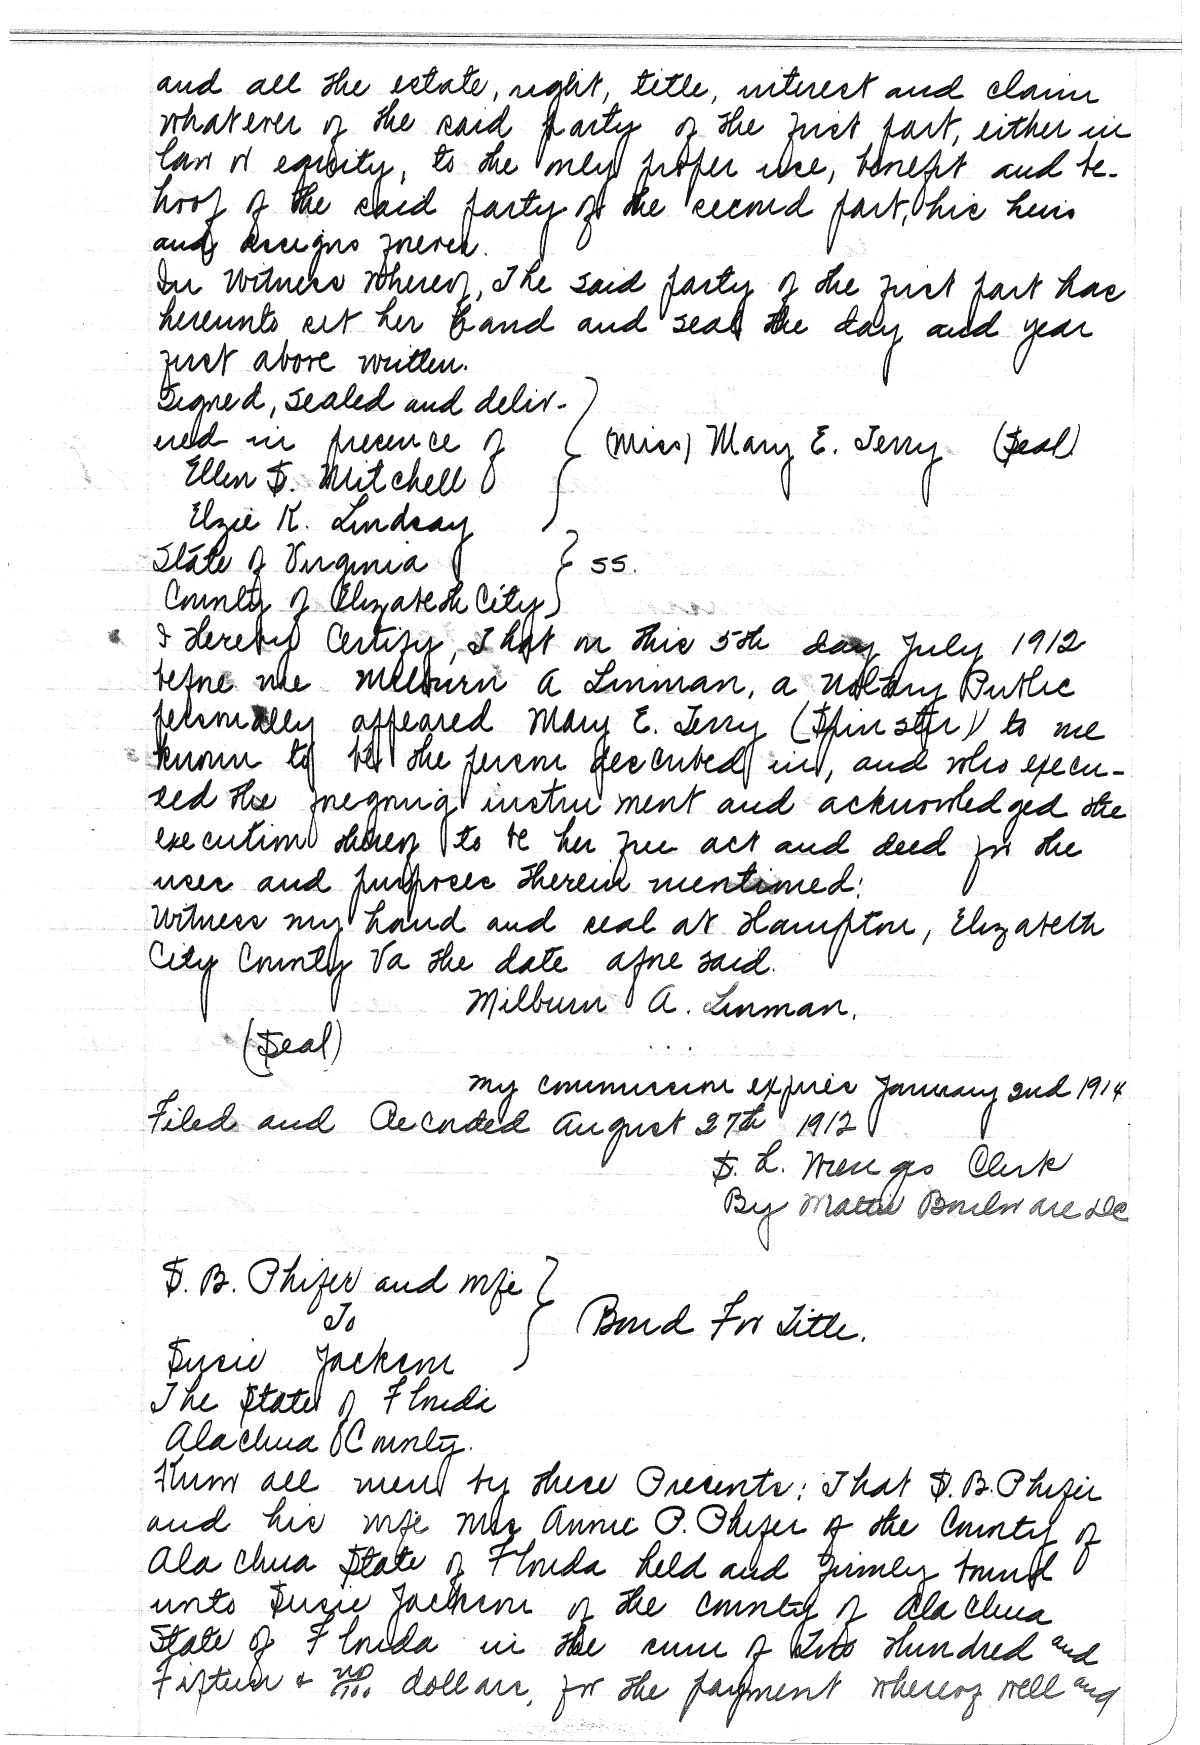 and all the estate, right, title, interest and claim
whatever of the said party of the first part, either in
law or equity, to the only proper use, benefit and be-
hoof of the said party of the second part, his heirs
and assigns forever.
In Witness Whereof, The said party of the first part has
hereunto set her hand and seal the day and year
first above written.
Signed, sealed and deliv-
ered in presence of
(Miss) Mary E. Terry (Seal)
Ellen S. Mitchell
Elzie K. Lindsay
State of Virginia
SS.
County of Elizabeth City
I Hereby Certify, That on this 5th day July 1912
before me Milburn A Linman, a Notary Public
personally appeared Mary E. Terry (Spinster) to me
known to be the person described in, and who execu-
ted the foregoing instrument and acknowledged the
execution thereof to be her free act and deed for the
uses and purposes therein mentioned:
Witness my hand and seal at Hampton, Elizabeth
City County Va the date afore said.
Milburn A. Linman.
(Seal)
My commission expires January 2nd 1914
Filed and Recorded August 27th 1912
S. H. Wienges Clerk
By Mattie Boulware DC
S. B. Phifer and wife
To
Bond For Title.
Susie Jackson
The State of Florida
Alachua County.
Know all men by these Presents: That S. B. Phifer
and his wife Mrs Annie P. Phifer of the County of
Alachua State of Florida held and firmly bound
unto Susie Jackson of the county of Alachua
State of Florida in the sum of Two Hundred and
Fifteen & no/100 dollars, for the payment whereof well and